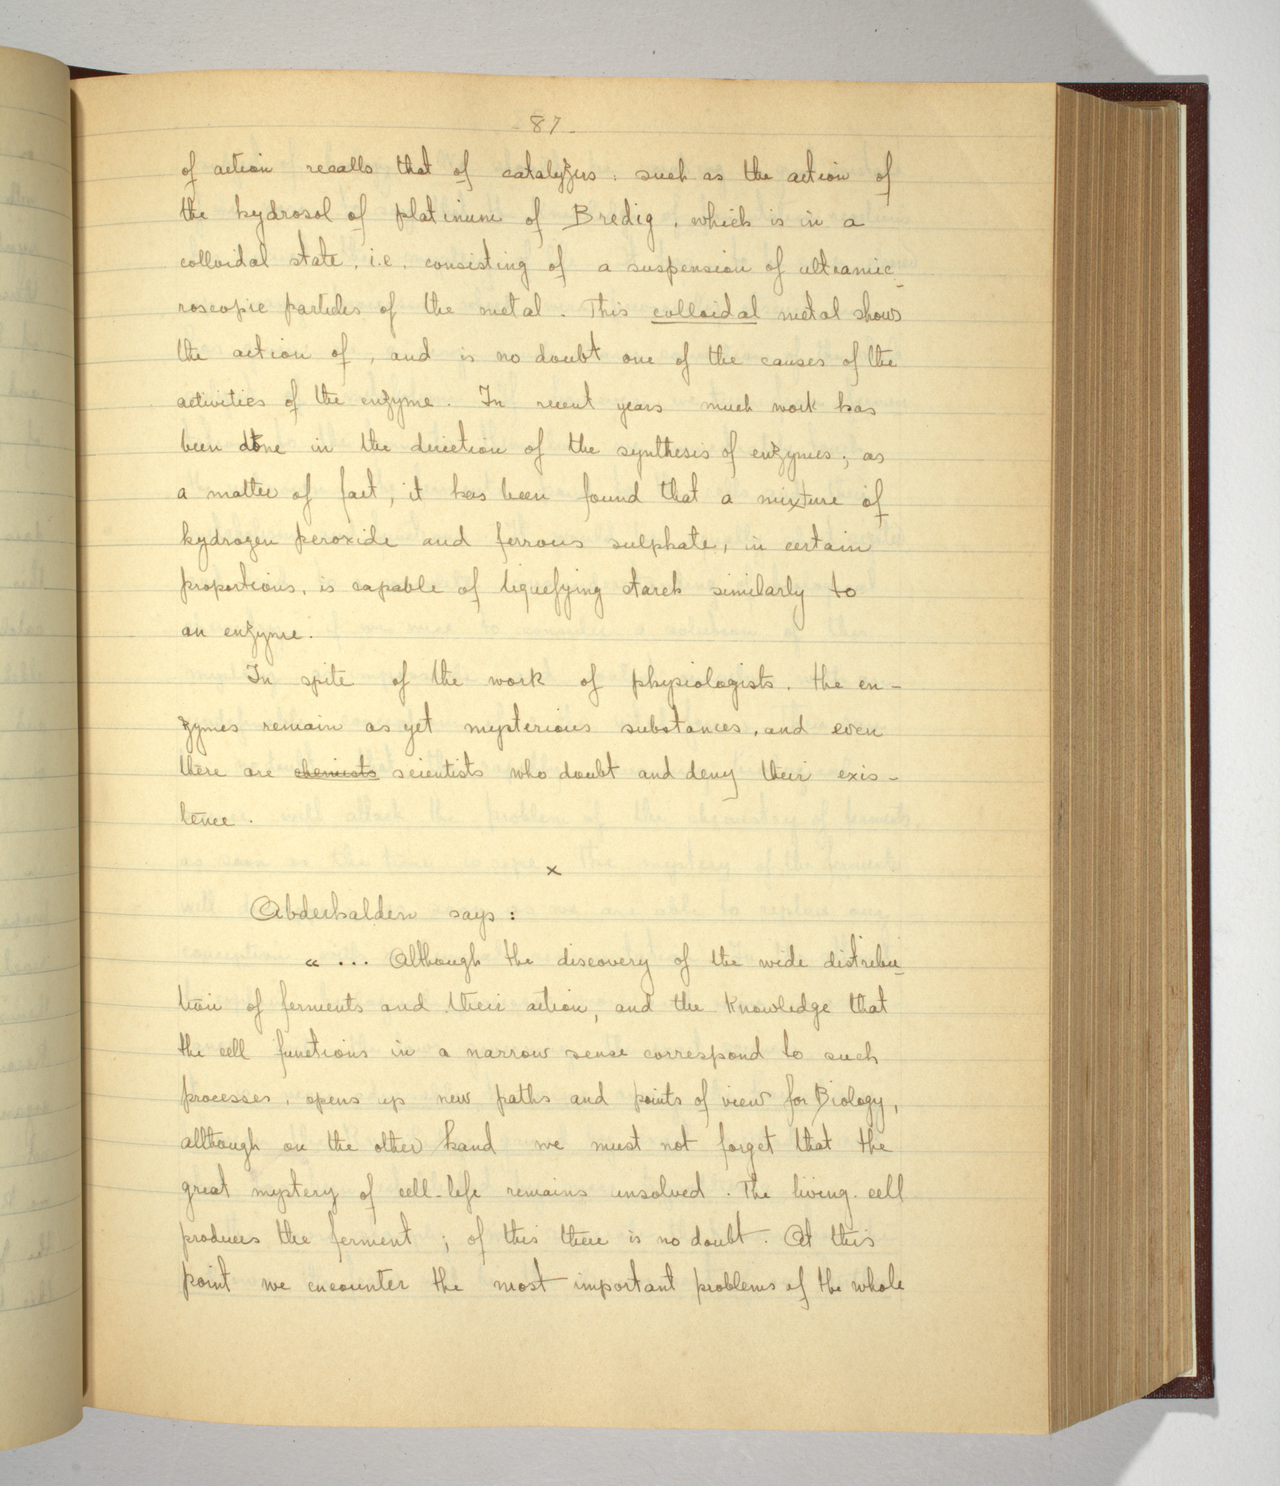 - 87 -
of action recalls that of catalyzers: such as the action of
the hydrosol of platinum of Bredig, which is in a
colloidal state, i.e. consisting of a suspension of ultramic-
roscopic particles of the metal. This colloidal metal shows
the action of, and is no doubt one of the causes of the
activities of the enzyme. In recent years much work has
been done in the direction of the synthesis of enzymes; as
a matter of fact, it has been found that a mixture of
hydrogen peroxide and ferrous sulphate, in certain
proportions, is capable of liquefying starch similarly to
an enzyme.
In spite of the work of physiologists, the en-
zymes remain as yet mysterious substances, and even
there are chemists scientists who doubt and deny their exis-
tence.
x
Abderhalden says:
" ... Although the discovery of the wide distribu-
tion of ferments and their action, and the knowledge that
the cell functions in a narrow sense correspond to such
processes, opens up new paths and points of view for Biology,
although on the other hand we must not forget that the
great mystery of cell-life remains unsolved. The living cell
produces the ferment; of this there is no doubt. At this
point we encounter the most important problems of the whole